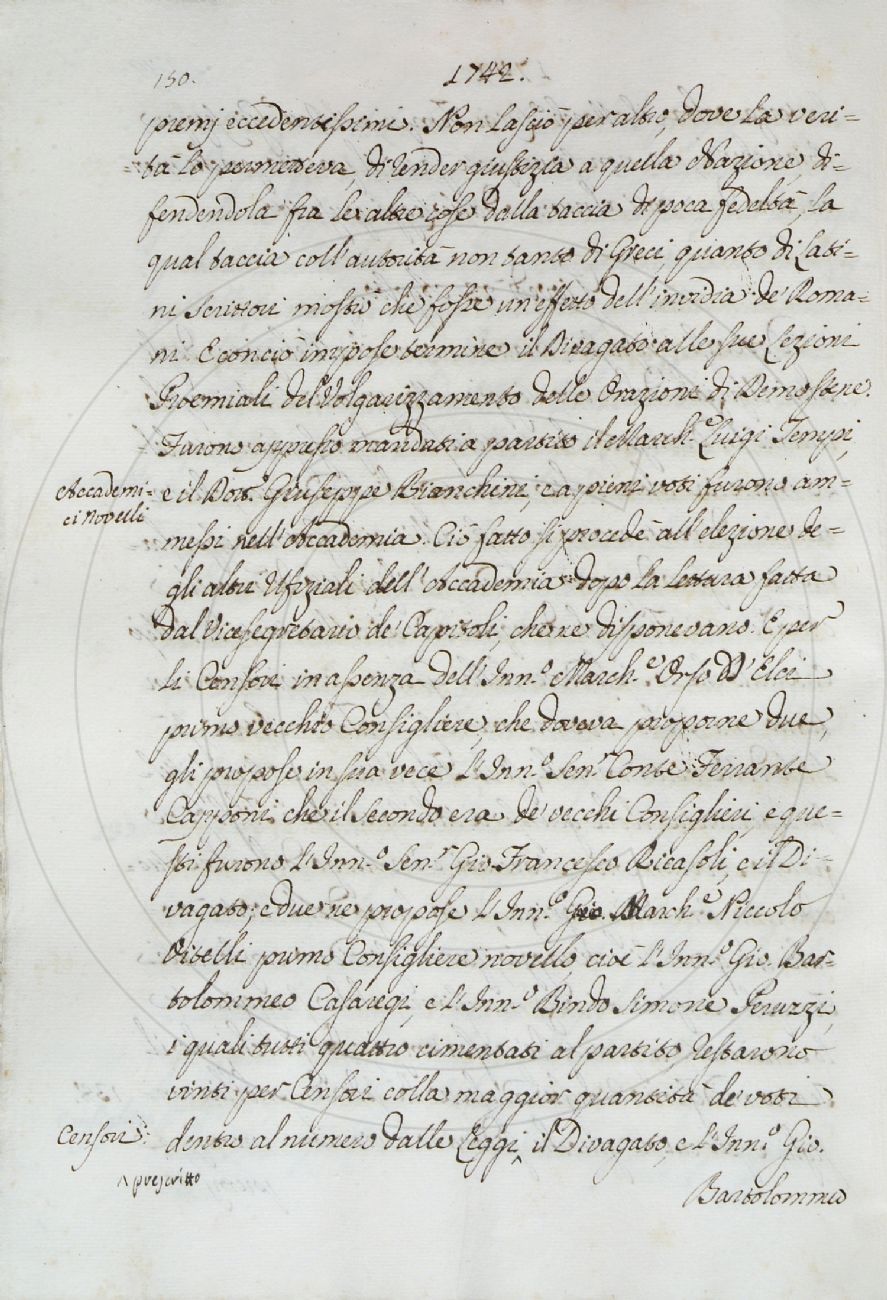 150. 1742.
premj eccedentissimi. Non lasciò per altro, dove la veri=
=tà lo permetteva, di render giustizia a quella Nazione, di=
fendendola fra le altre cose dalla taccia di poca fedeltà, la
qual taccia coll'autorità non tanto di Greci quanto di Lati=
ni Scrittori mostrò che fosse un'effetto dell'invidia de' Roma=
ni. E con ciò impose termine il Divagato alle sue Lezioni
Proemiali del Volgarizzamento delle Orazioni di Demostene.
Furono appresso mandati a partito il March.e Luigi Tempi,
Accademi=
ci Novelli
e il Dott.r Giuseppe Bianchini, e a pieni voti furono am=
messi nell'Accademia. Ciò fatto si procedè all'elezione de=
gli altri Ufiziali dell'Accademia dopo la lettura fatta
dal Vicesegretario de' Capitoli, che ne disponevano. E per
li Censori in assenza dell'Inn.o March.e Orso D'Elci
primo vecchio Consigliere, che doveva proporne due,
gli propose in sua vece l'Inn.o Sen.r Conte Ferrante
Capponi, che il secondo era de' vecchi Consiglieri, e que=
sti furono l'Inn.o Sen.r Gio. Francesco Ricasoli, e il Di=
vagato; e due ne propose l'Inn.o March.e Niccolo
Vitelli primo Consigliere novello, cioè l'Inn.o Gio. Bar=
tolommeo Casaregi, e l'Inn.o Bindo Simone Peruzzi,
i quali tutti quattro cimentati al partito restarono
vinti per Censori colla maggior quantità de' voti
Censori:
dentro al numero dalle Leggi^, il Divagato, e l'Inn.o Gio.
^ prescritto
Bartolommeo